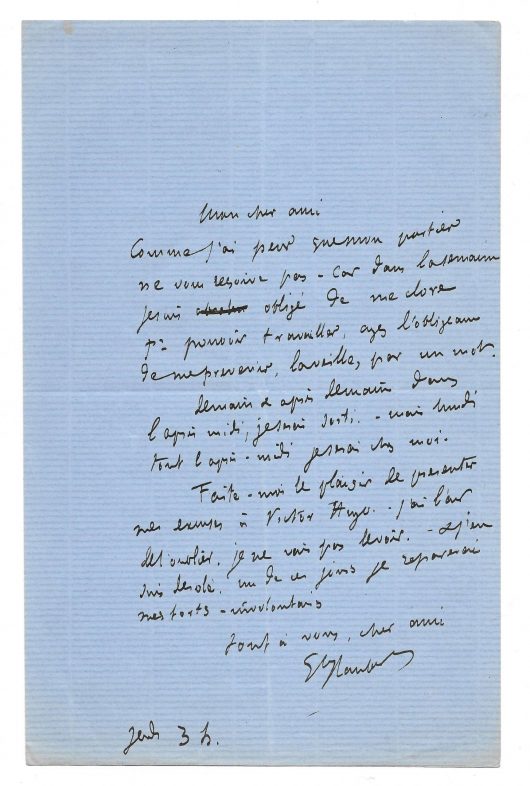 Mon cher ami
Comme j'ai peur que mon portier
ne vous reçoive pas - car dans la semaine
je suis obligé de me clore
pr pouvoir travailler, ayez l'obligeance
de me prévenir, la veille, par un mot.
demain & après demain dans
l'après midi, je serai sorti. - mais lundi
tout l'après-midi je serai chez moi.
Faites-moi le plaisir de présenter
mes excuses à Victor Hugo. - j'ai l'air
de l'oublier. je ne vais pas le voir. - & j'en
suis désolé. un de ces jours je réparerai
mes torts - involontaires
tout à vous, cher ami
Gve Flaubert
Jeudi 3 h.